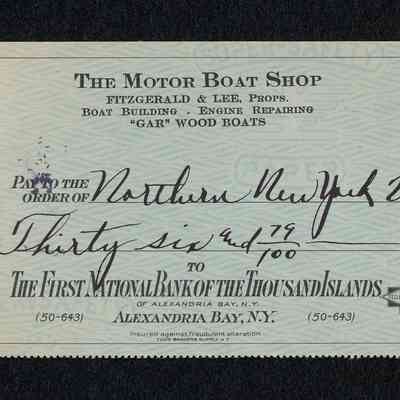 THE MOTOR BOAT SHOP
FITZGERALD & LEE, PROPS.
BOAT BUILDING - ENGINE REPAIRING
"GAR" WOOD BOATS
PAY TO THE
ORDER OF Northern New York
Thirty six and 79/100
TO
THE FIRST NATIONAL BANK OF THE THOUSAND ISLANDS
OF ALEXANDRIA BAY, N.Y.
(50-643) ALEXANDRIA BAY, N.Y. (50-643)
Insured against fraudulent alteration